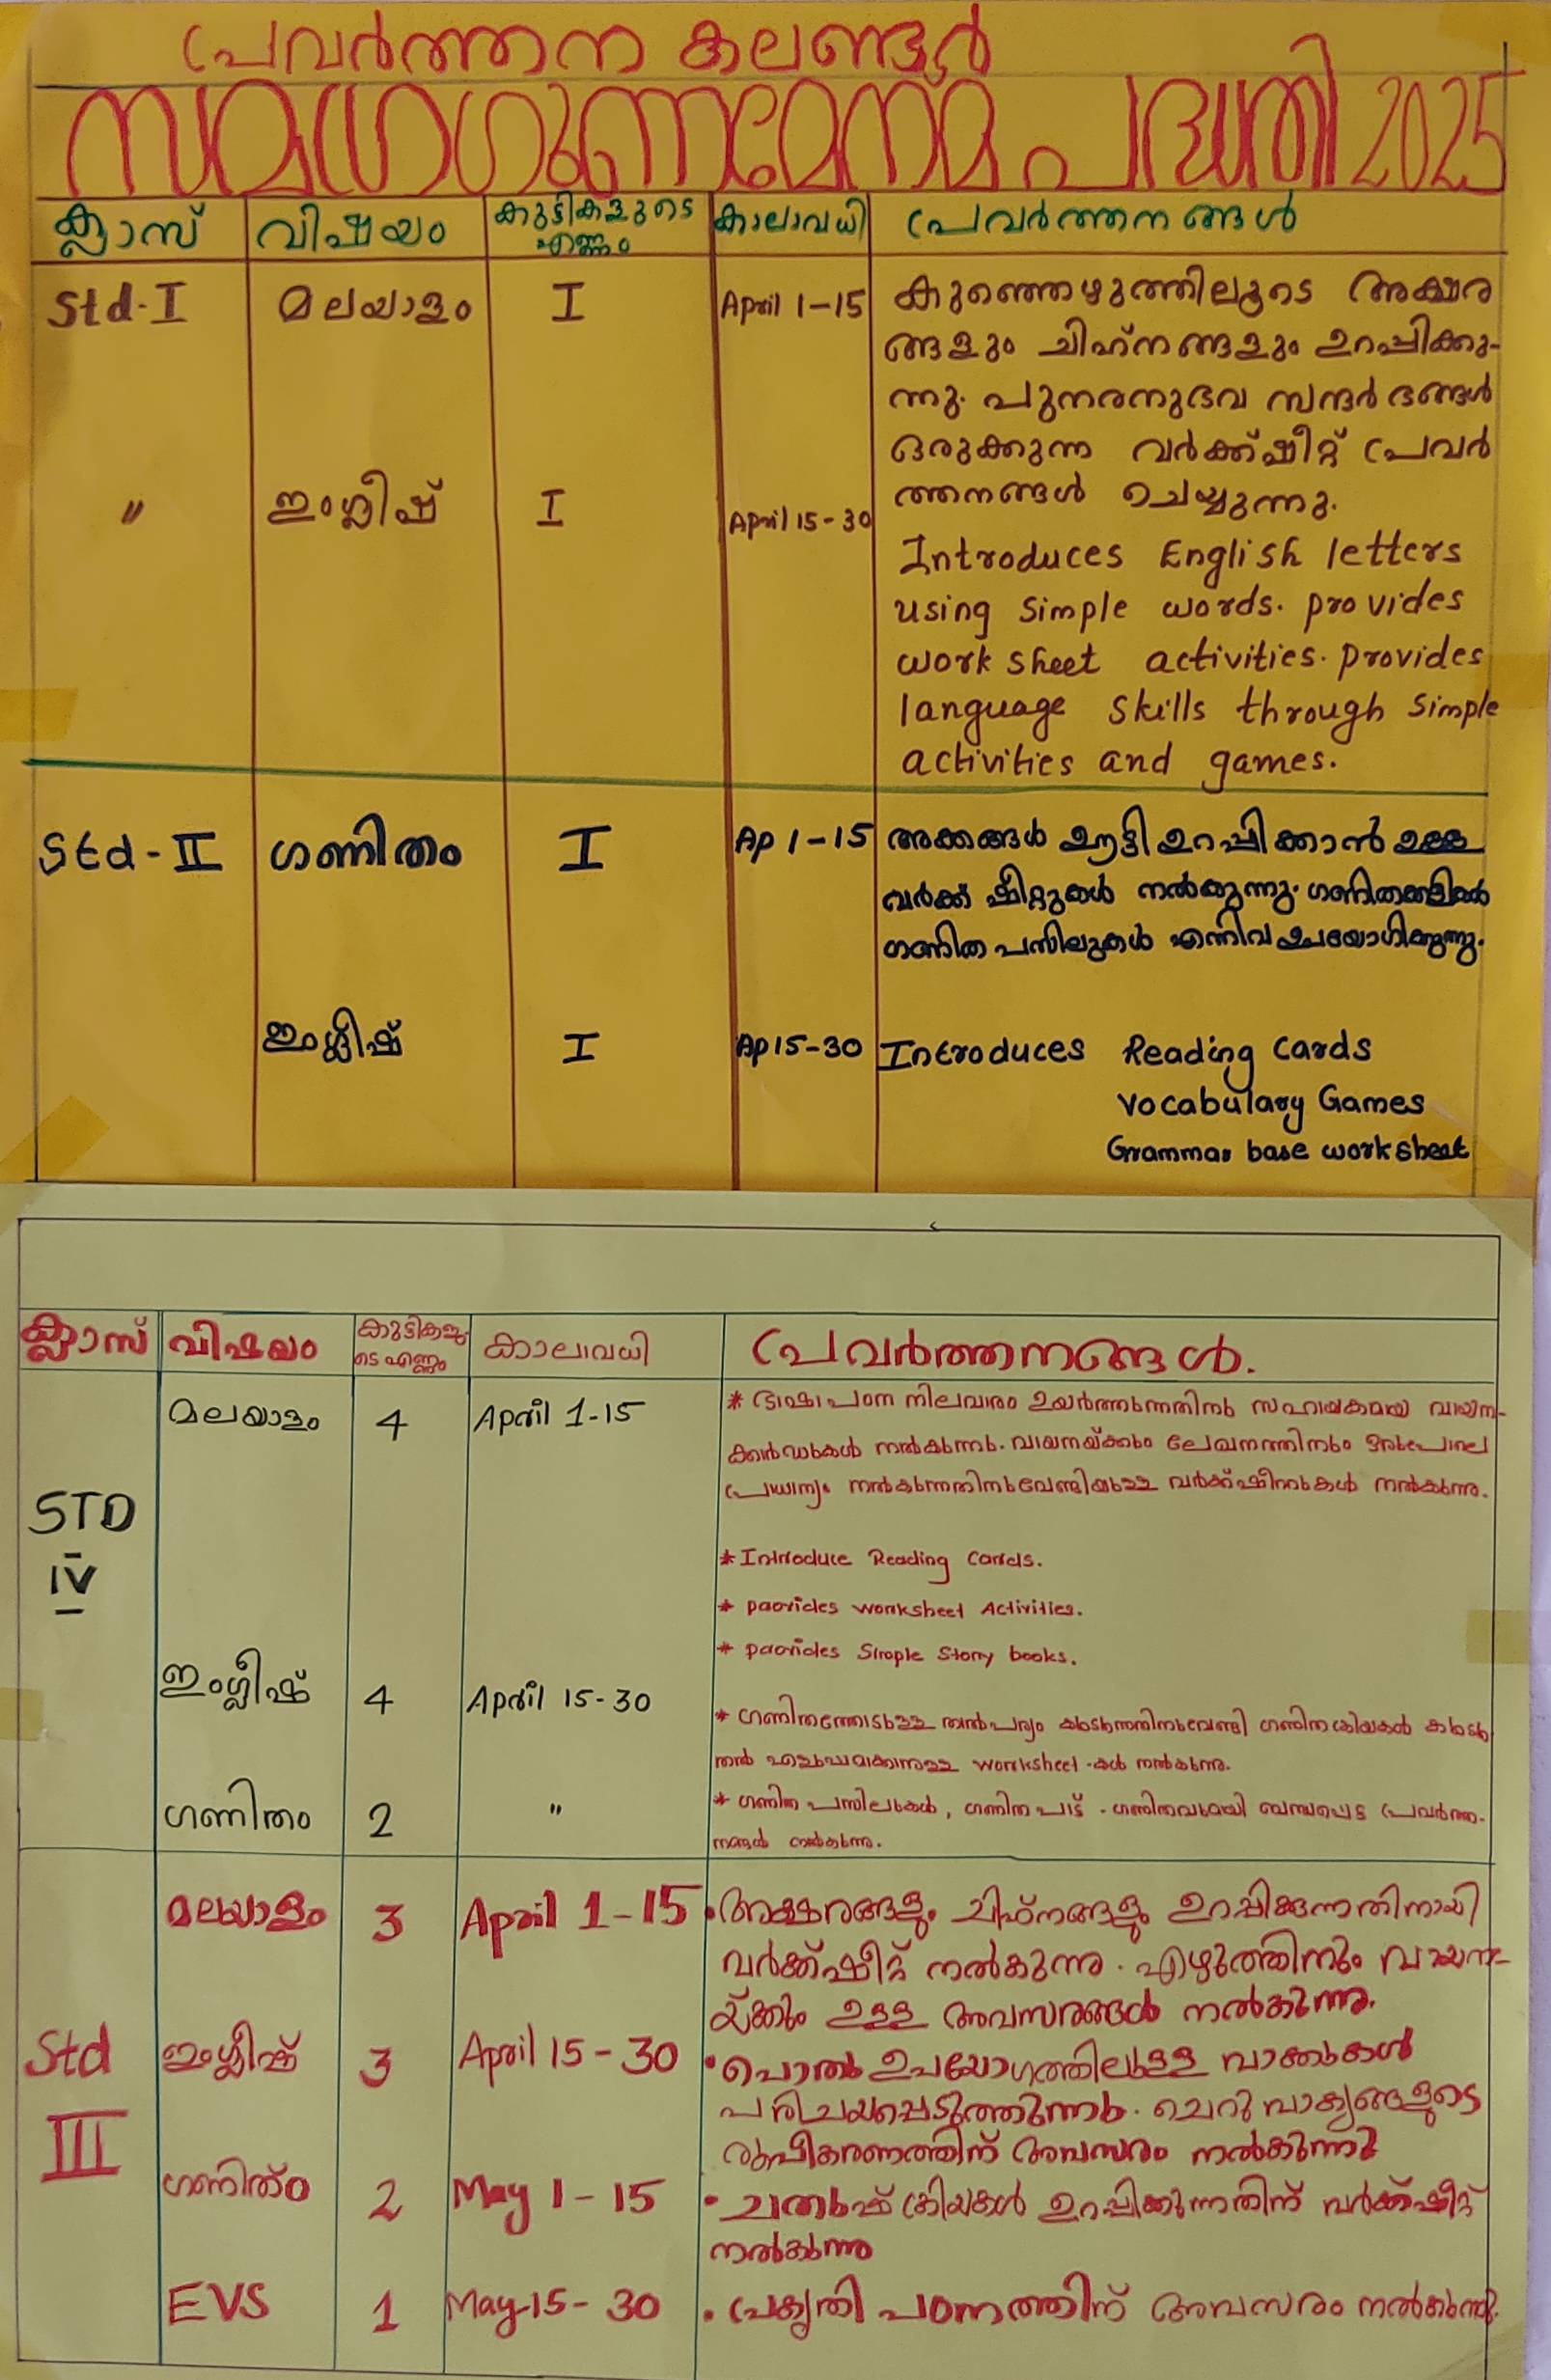 പ്രവർത്തന കലണ്ടർ
സമഗ്രഗുണമേന്മ പദ്ധതി 2025
ക്ലാസ് വിഷയം കുട്ടികളുടെ എണ്ണം കാലാവധി പ്രവർത്തനങ്ങൾ
Std-I മലയാളം I April 1-15 കുഞ്ഞെഴുത്തിലൂടെ അക്ഷര
ങ്ങളും ചിഹ്നങ്ങളും ഉറപ്പിക്കു-
ന്നു. പുനരനുഭവ സന്ദർഭങ്ങൾ
ഒരുക്കുന്ന വർക്ക്ഷീറ്റ് പ്രവർ
ത്തനങ്ങൾ ചെയ്യുന്നു.
" ഇംഗ്ലീഷ് I April 15-30
Introduces English letters
using simple words. provides
work sheet activities. provides
language skills through simple
activities and games.
Std-II ഗണിതം I Ap 1-15 അക്കങ്ങൾ ഊട്ടി ഉറപ്പിക്കാൻ ഉള്ള
വർക്ക് ഷീറ്റുകൾ നൽകുന്നു. ഗണിതക്കളികൾ
ഗണിത പസിലുകൾ എന്നിവ ഉപയോഗിക്കുന്നു.
ഇംഗ്ലീഷ് I Ap 15-30 Introduces Reading Cards
Vocabulary Games
Grammar base worksheet
ക്ലാസ് വിഷയം കുട്ടികളു
ടെ എണ്ണം കാലാവധി പ്രവർത്തനങ്ങൾ.
STD
IV
മലയാളം 4 April 1-15 * ഭാഷാപഠന നിലവാരം ഉയർത്തുന്നതിനു സഹായകമായ വായന-
ക്കാർഡുകൾ നൽകുന്നു. വായനയ്ക്കും ലേഖനത്തിനും ഒരുപോലെ
പ്രാധാന്യം നൽകുന്നതിനുവേണ്ടിയുള്ള വർക്ക്ഷീറ്റുകൾ നൽകുന്നു.
* Introduce Reading Cards.
* provides worksheet Activities.
* provides Simple Story books.
ഇംഗ്ലീഷ് 4 April 15-30
* ഗണിതത്തോടുള്ള താൽപര്യം കൂടുന്നതിനുവേണ്ടി ഗണിതക്രിയകൾ കൂടു
തൽ എളുപ്പമാക്കാനുള്ള worksheet-കൾ നൽകുന്നു.
ഗണിതം 2 " * ഗണിത പസിലുകൾ, ഗണിത പാട്ട്. ഗണിതവുമായി ബന്ധപ്പെട്ട പ്രവർത്ത-
നങ്ങൾ നൽകുന്നു.
Std
III
മലയാളം 3 April 1-15 • അക്ഷരങ്ങളും ചിഹ്നങ്ങളും ഉറപ്പിക്കുന്നതിനായി
വർക്ക്ഷീറ്റ് നൽകുന്നു. എഴുത്തിനും വായന-
യ്ക്കും ഉള്ള അവസരങ്ങൾ നൽകുന്നു.
ഇംഗ്ലീഷ് 3 April 15-30 • പൊതു ഉപയോഗത്തിലുള്ള വാക്കുകൾ
പരിചയപ്പെടുത്തുന്നു. ചെറു വാക്യങ്ങളുടെ
രൂപീകരണത്തിന് അവസരം നൽകുന്നു
ഗണിതം 2 May 1-15 • ചതുഷ് ക്രിയകൾ ഉറപ്പിക്കുന്നതിന് വർക്ക്ഷീറ്റ്
നൽകുന്നു
EVS 1 May-15-30 • പ്രകൃതി പഠനത്തിന് അവസരം നൽകുന്നു.